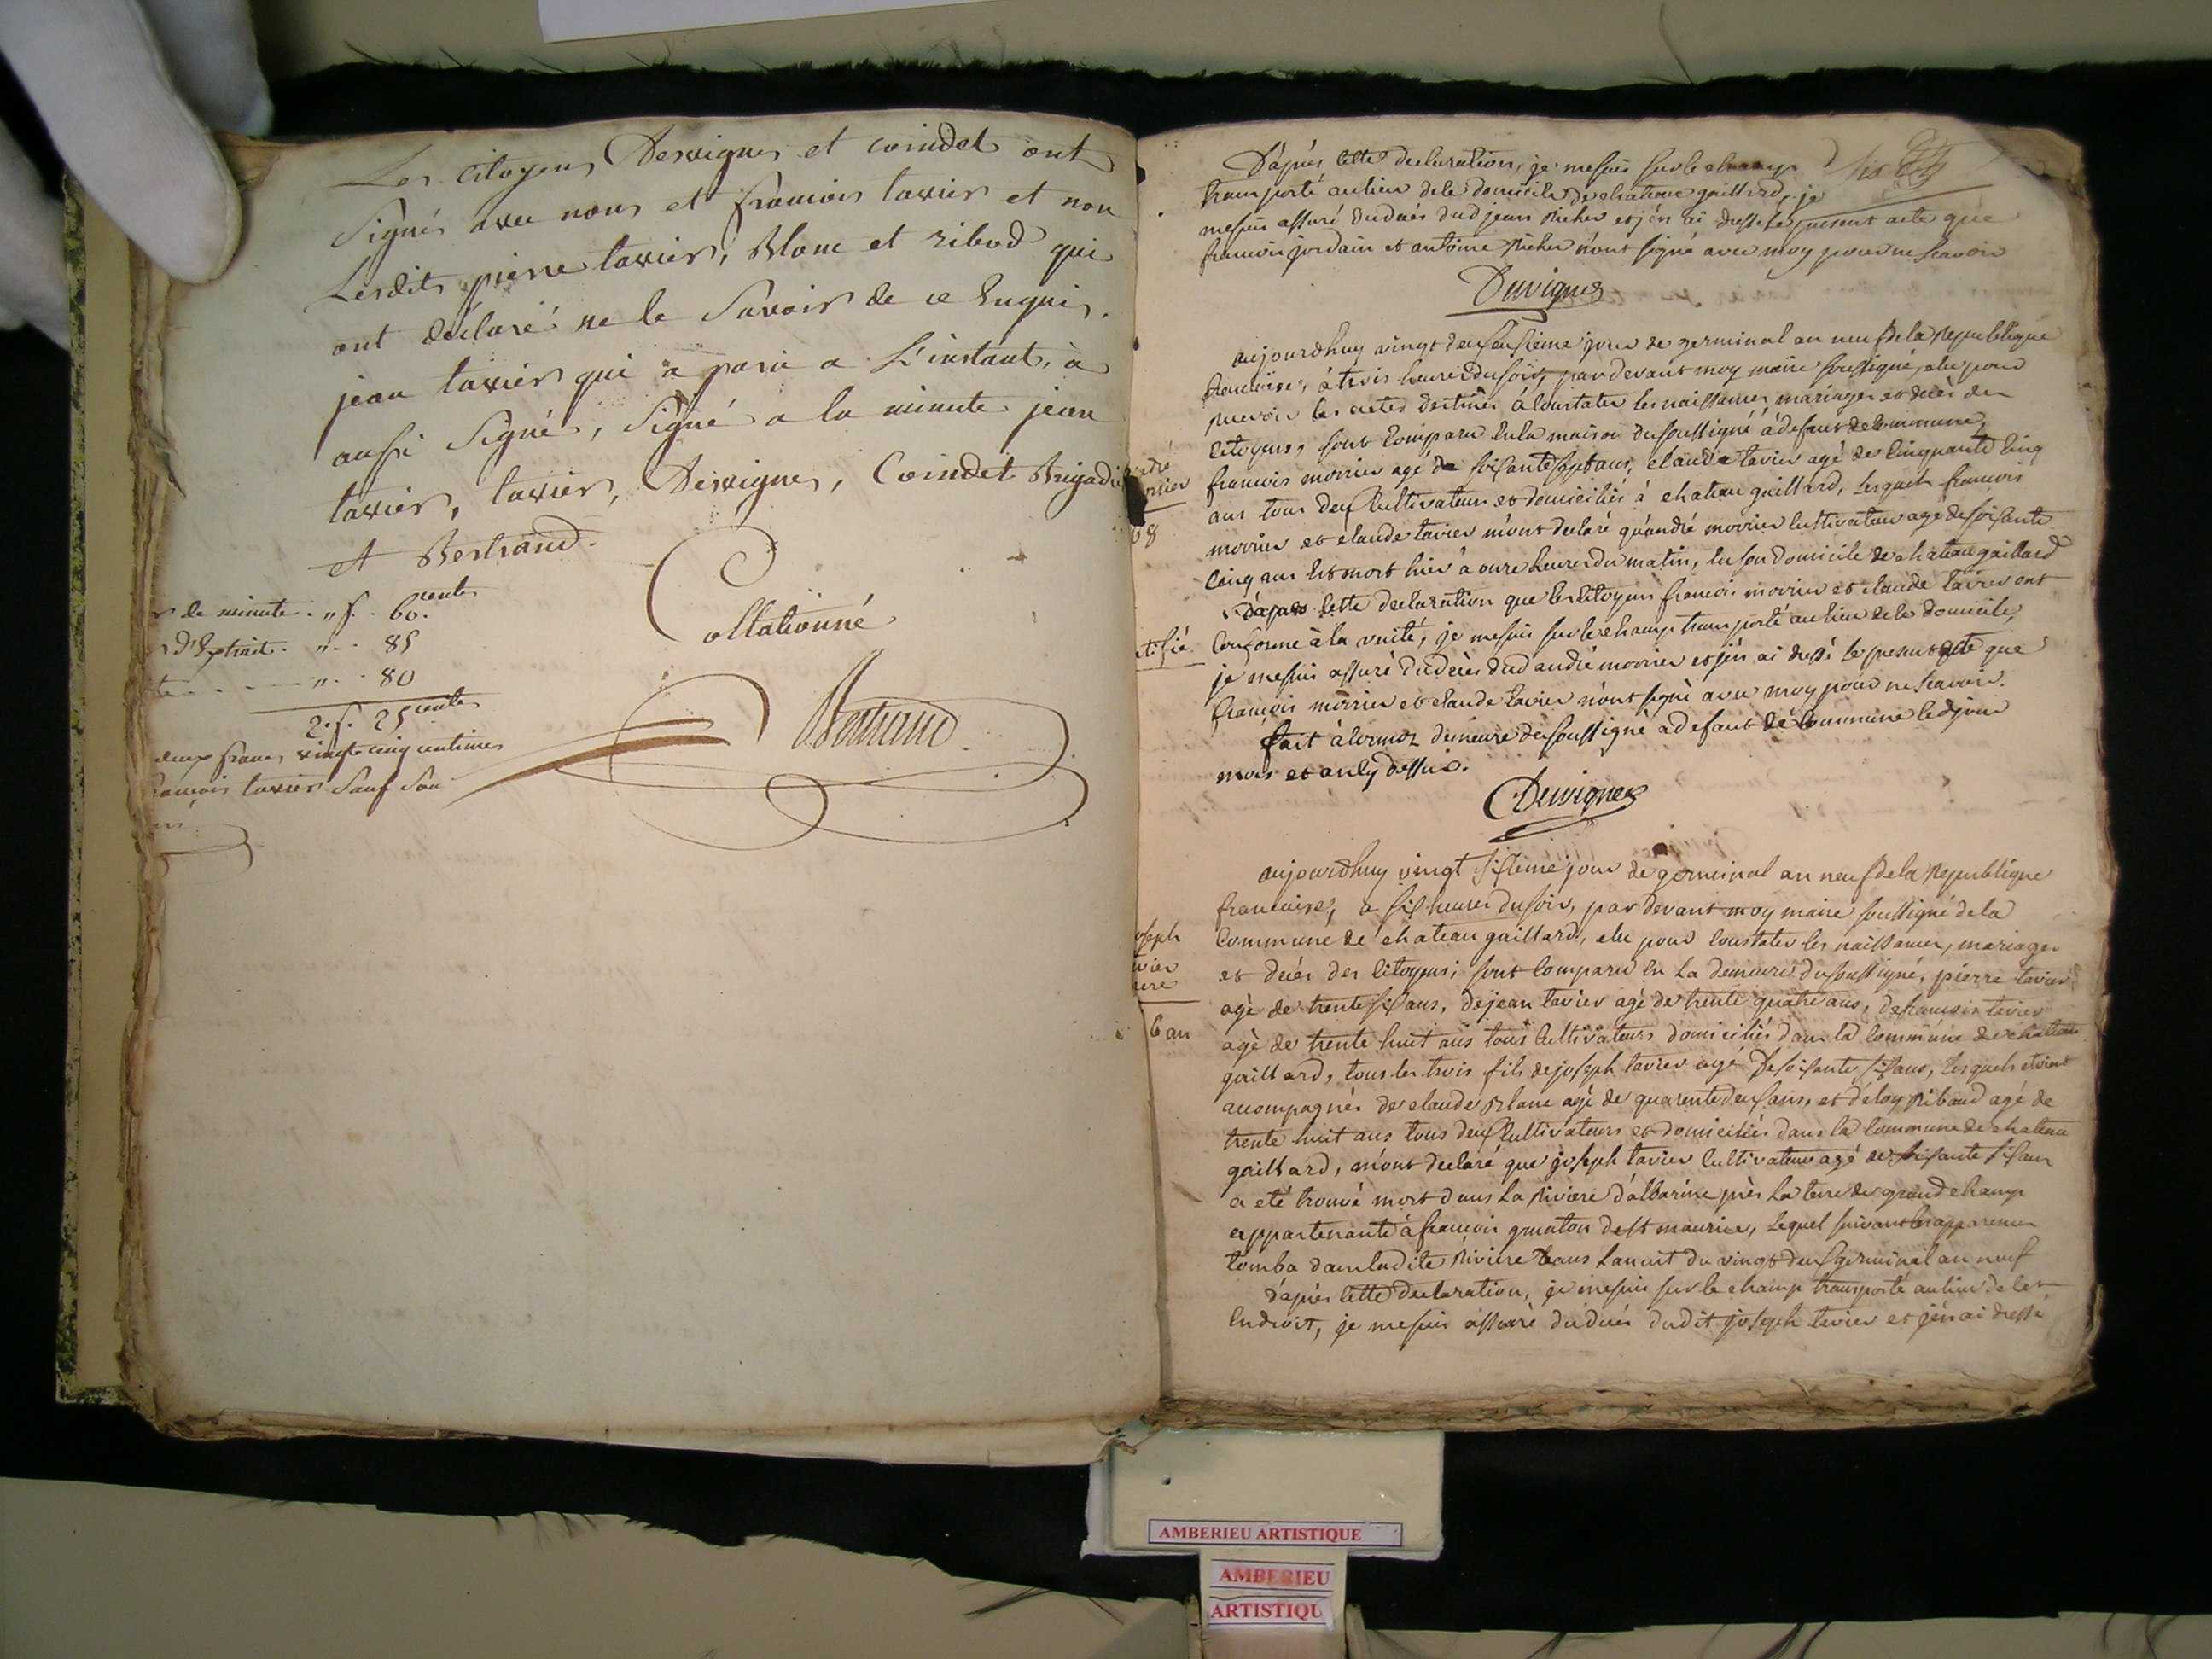 Les citoyens Desvignes et coindet ont
Signés avec nous et francois tavier et non
Lesdits pierre tavier, Blanc et ribod qui
ont déclaré ne le Savoir de ce Enquis.
jean tavier qui a paru a L'instant, a
aussi Signé, Signé a la minute jean
tavier, tavier, Desvignes, Coindet Brigadier
et Bertrand.
de minute . " f. 60 cent
d'Extrait . " . 85
" . 80
2. f. 25 cent
deux francs vingt cinq centimes
francois tavier Sauf Son
Collationné
Bertrand
D'après cette declaration, je me suis sur le champ
transporté au lieu de le domicile de chateau gaillard, je
me suis assuré du decès dud jean Richer et j'en ai dressé le present acte que
francois jordain et antoine Richer n'ont signé avec moy pour ne scavoir
Desvignes
aujourdhuy vingt deusieme jour de germinal an neuf de la Republique
francaise, à trois heures du soir, par devant moy maire soussigné, elu pour
recevoir les actes destinés à constater les naissances mariages et decès des
citoyens, sont comparu en la maison du soussigné à defaut de commune,
francois morrier agé de soisante sept ans, claude tavier agé de cinquante cinq
ans tous deux cultivateurs et domiciliés à chateau gaillard, lesquels francois
morrier et claude tavier m'ont declaré qu'andré morrier cultivateur agé de soisante
cinq ans est mort hier à onze heures du matin, en son domicile de chateau gaillard
d'apres cette declaration que les citoyens francois morrier et claude tavier ont
certifié
conforme à la verité, je me suis sur le champ transporté au lieu de le domicile,
je me suis assuré du decès dud andré morrier et j'en ai dressé le present acte que
françois morrier et claude tavier n'ont signé avec moy pour ne scavoir.
fait à cormoz demeure du soussigné à defaut de commune led jour
mois et an cy dessus.
Desvignes
68
aujourdhuy vingt sixieme jour de germinal an neuf de la Republique
francaise, a six heures du soir, par devant moy maire soussigné de la
commune de chateau gaillard, elu pour constater les naissances, mariages
et decès des citoyens; sont comparu en la demeure du soussigné, pierre tavier
agé de trente six ans, de jean tavier agé de trente quatre ans, de francois tavier
agé de trente huit ans tous cultivateurs domiciliés dans la commune de chateau
gaillard, tous les trois fils de joseph tavier agé de soisante six ans, lesquels etoint
acompagnés de claude Blanc agé de quarente deux ans, et d'eloy Ribaud agé de
trente huit ans tous deux cultivateurs et domiciliés dans la commune de chateau
gaillard, m'ont declaré que joseph tavier cultivateur agé de soisante six ans
a eté trouvé mort dans la Riviere d'albarine près la terre de grand champ
appartenante à françois de st maurice, lequel suivant les apparences
tomba dans ladite Riviere dans la nuit du vingt deux germinal an neuf
d'après cette declaration, je me suis sur le champ transporté au lieu de cet
endroit, je me suis assuré du decès dudit joseph tavier et j'en ai dressé
oseph
6 an
AMBERIEU ARTISTIQUE
AMBERIEU
ARTISTIQU